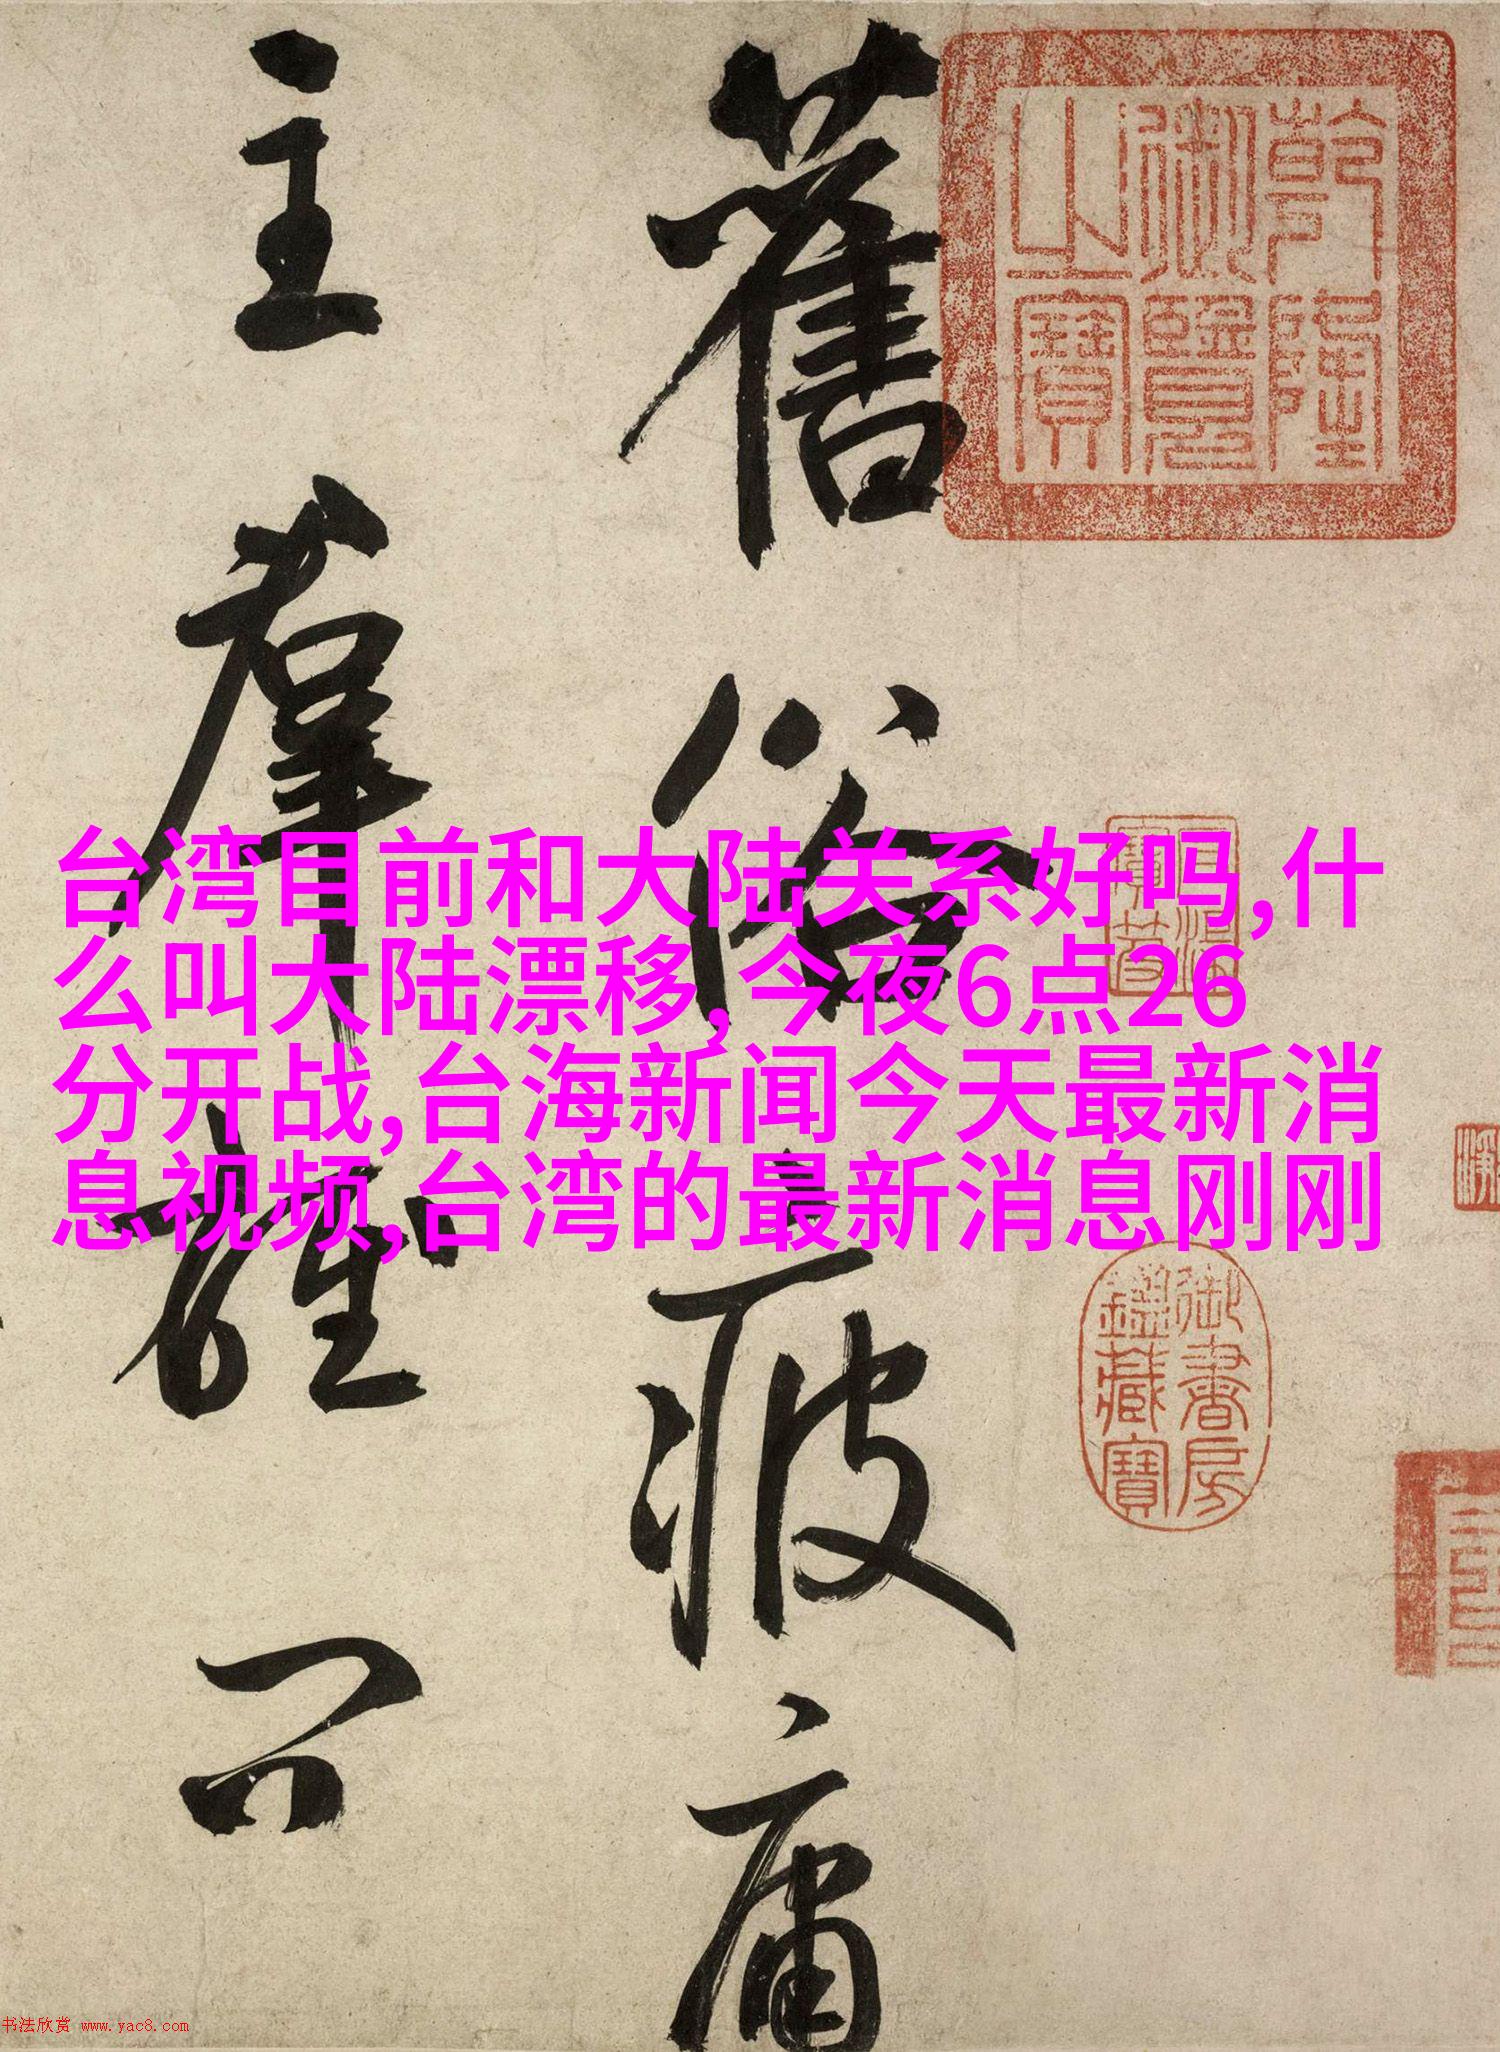 舊俗疲庸
主羣
乾隆
御覽
之寶
台湾目前和大陆关系好吗,什
么叫大陆漂移,今夜6点26
分开战,台海新闻今天最新消
息视频,台湾的最新消息刚刚
御書房
鑑藏寶
书法欣赏 www.yac8.com